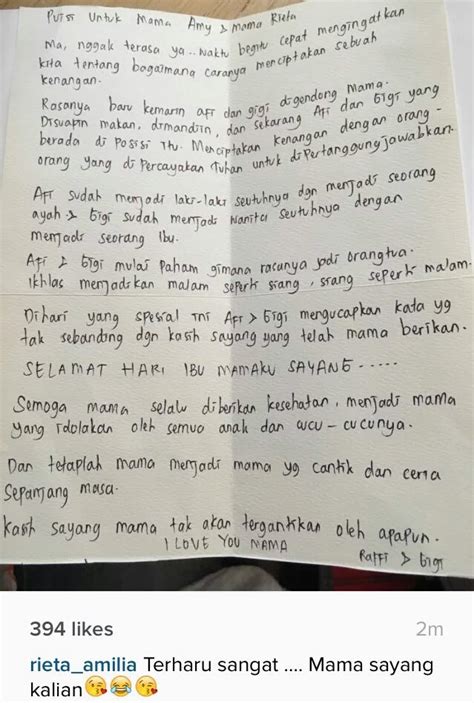 Puisi Untuk Mama Amy & Mama Rieta
Ma, nggak terasa ya.. Waktu begitu cepat mengingatkan
kita tentang bagaimana caranya menciptakan sebuah
kenangan.
Rasanya baru kemarin Afi dan gigi digendong mama.
Disuapin makan, dimandiin, dan sekarang Afi dan Gigi yang
berada di posisi itu. Menciptakan kenangan dengan orang-
orang yang di percayakan Tuhan untuk dipertanggungjawabkan.
Afi sudah menjadi laki-laki seutuhnya dgn menjadi seorang
ayah & Gigi sudah menjadi wanita seutuhnya dengan
menjadi seorang Ibu.
Afi & Gigi mulai paham gimana racunya jadi orangtua.
Ikhlas menjadikan malam seperti siang, siang seperti malam.
Dihari yang spesial ini Afi & Gigi mengucapkan kata yg
tak sebanding dgn kasih sayang yang telah mama berikan.
SELAMAT HARI IBU MAMAKU SAYANG .....
Semoga mama selalu diberikan kesehatan, menjadi mama
yang idolakan oleh semua anak dan cucu-cucunya.
Dan tetaplah mama menjadi mama yg cantik dan ceria
Sepanjang masa.
Kasih sayang mama tak akan tergantikan oleh apapun.
I LOVE YOU MAMA
Raffi & Gigi
394 likes
2m
rieta_amilia Terharu sangat .... Mama sayang
kalian😘😂😘